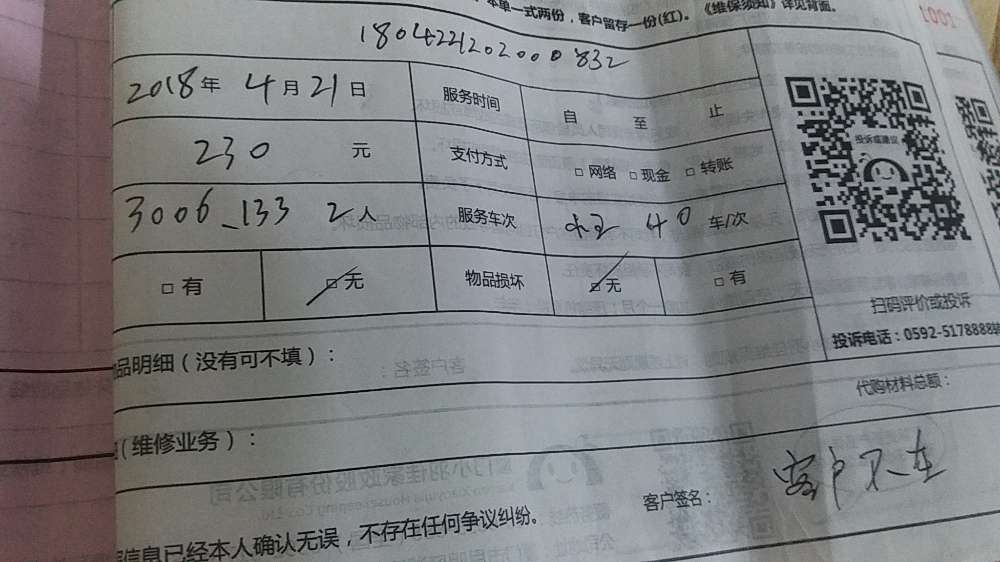 本单一式两份，客户留存一份(红)。《维保须知》详见背面。
1001
1804221202000832
2018年 4月21日 服务时间 自 至 止
230 元 支付方式 □ 网络 □ 现金 □ 转账
投诉或建议
3006_133 2人 服务车次 40 车/次
□ 有 □ 无 物品损坏 □ 无 □ 有
扫码评价或投诉
投诉电话：0592-5178888转
品明细（没有可不填）：
代购材料总额：
（维修业务）：
客户签名： 客户不在
信息已经本人确认无误，不存在任何争议纠纷。